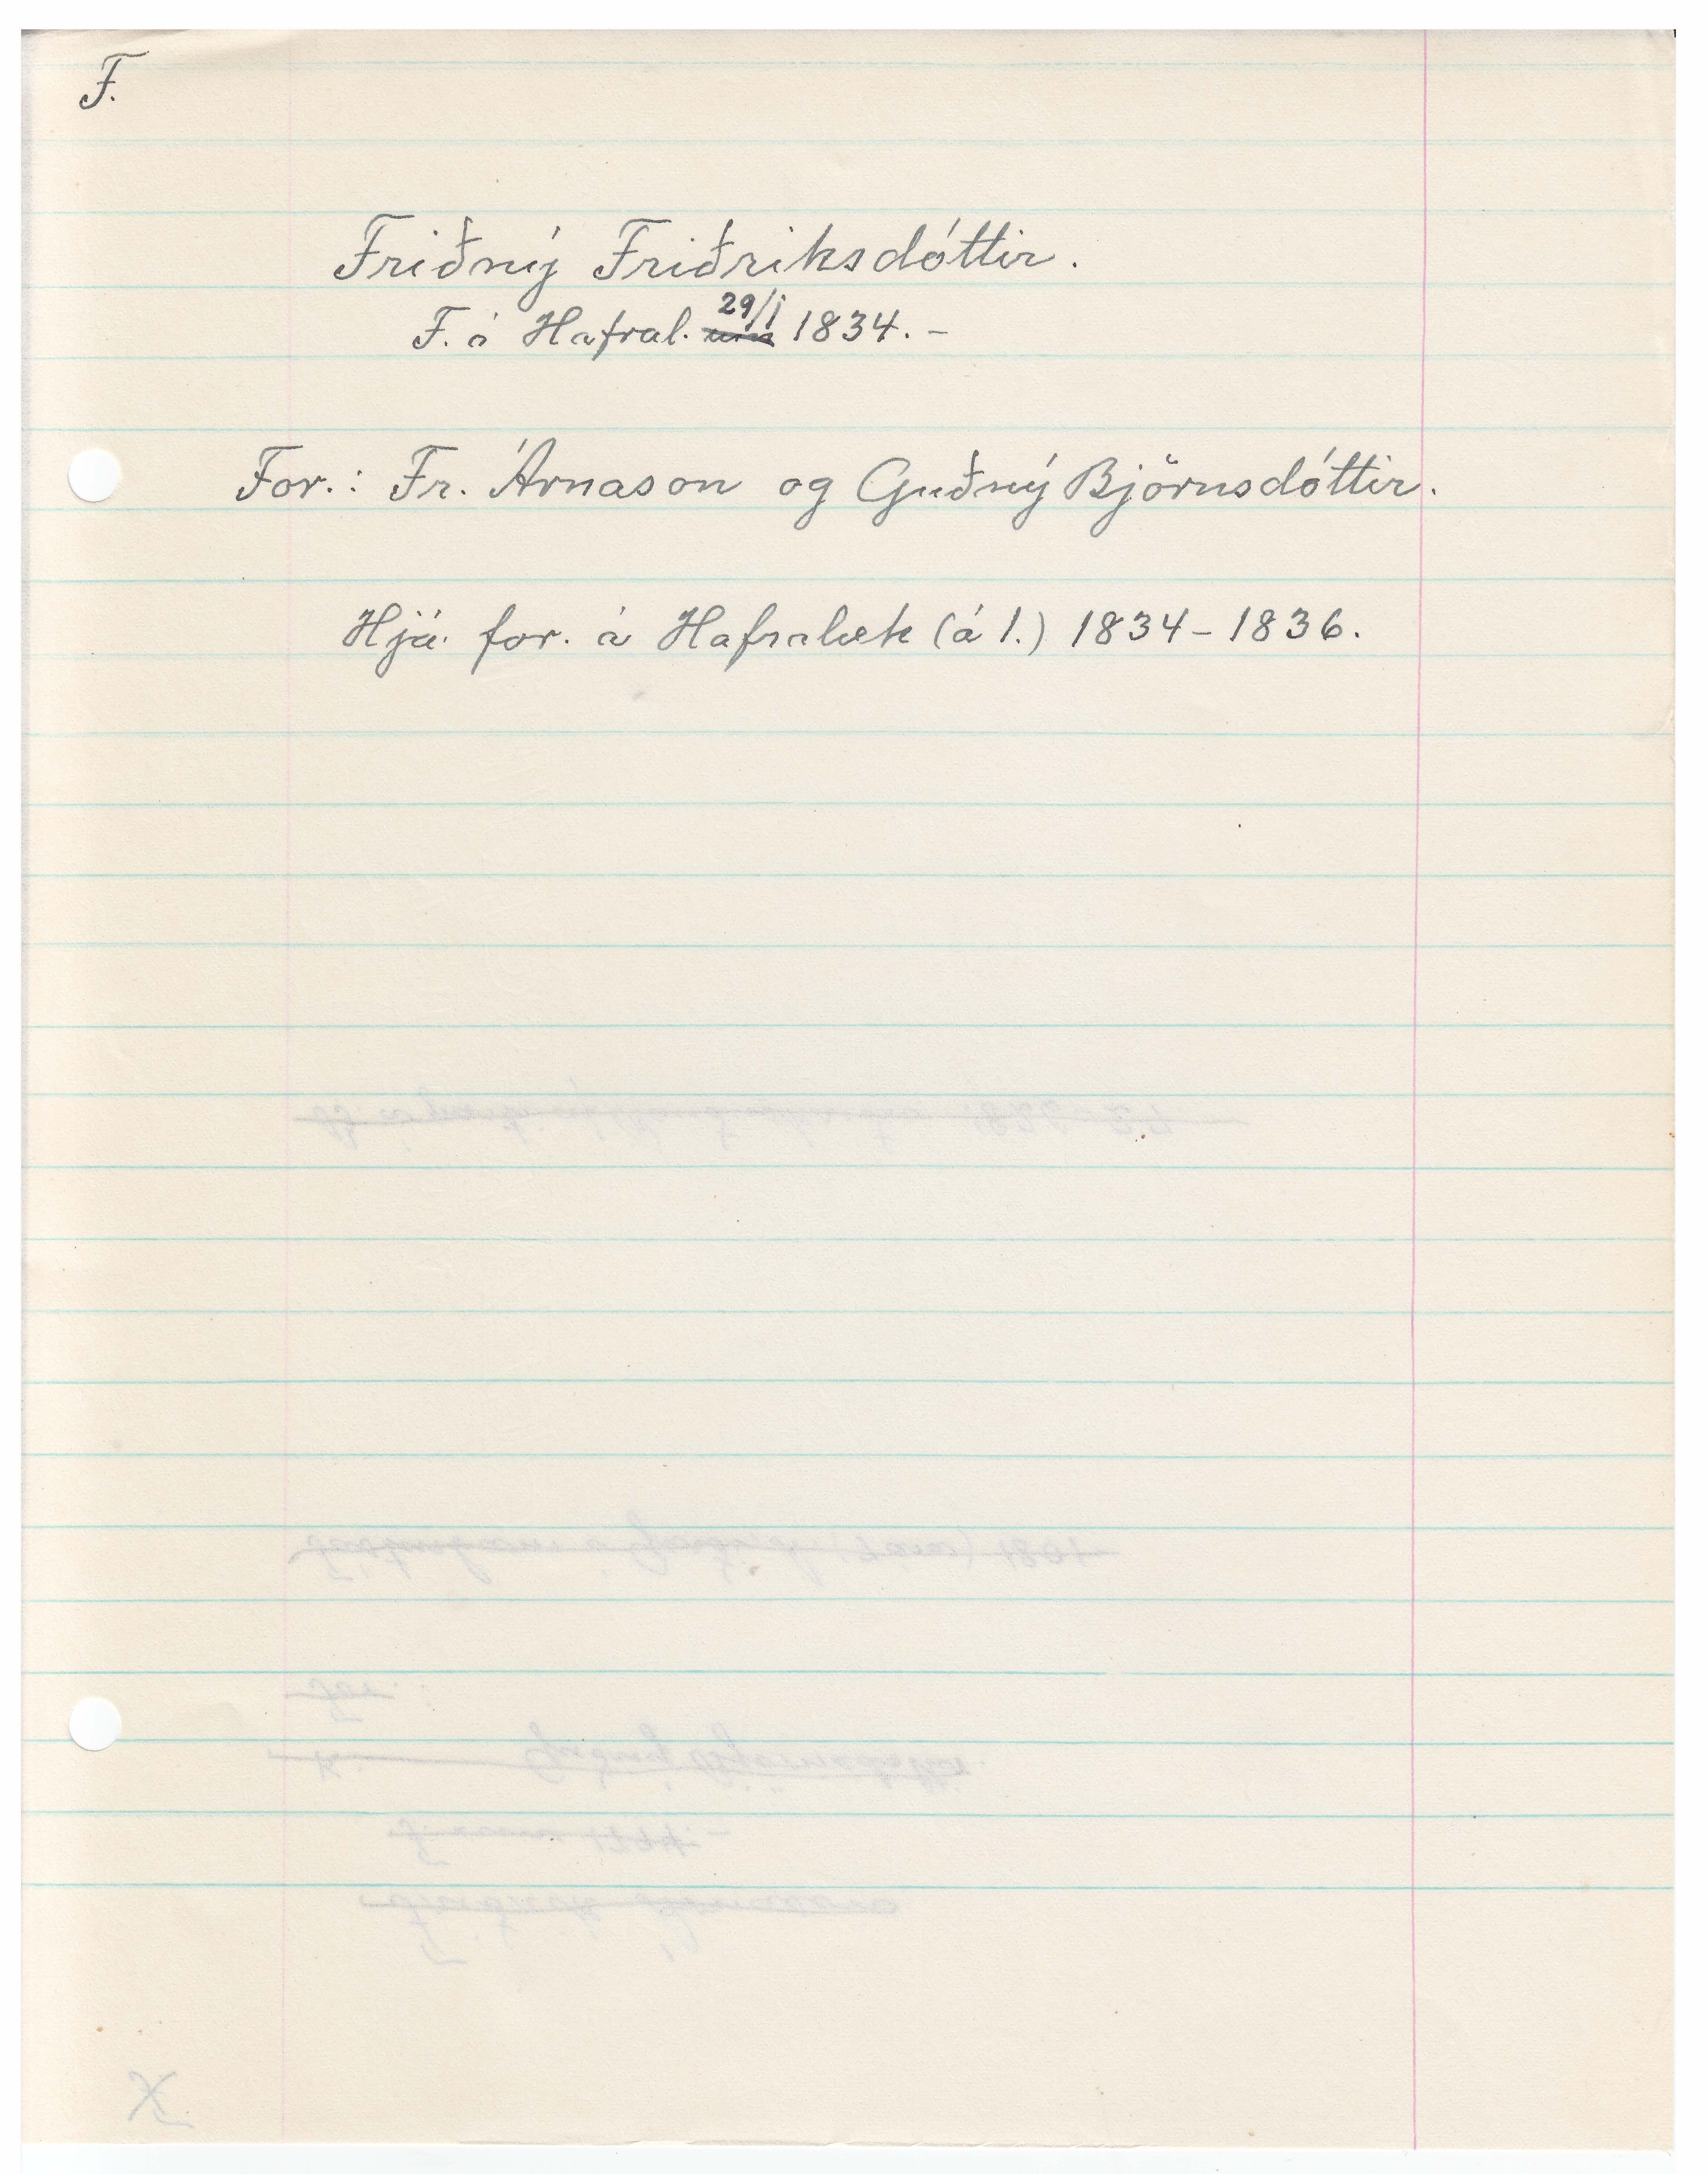 F.
Friðný Friðriksdóttir.
F. á Hafral. 29/1 1834. –
For.: Fr. Árnason og Guðný Björnsdóttir.
Hjá for. á Hafralæk (á 1.) 1834 – 1836.